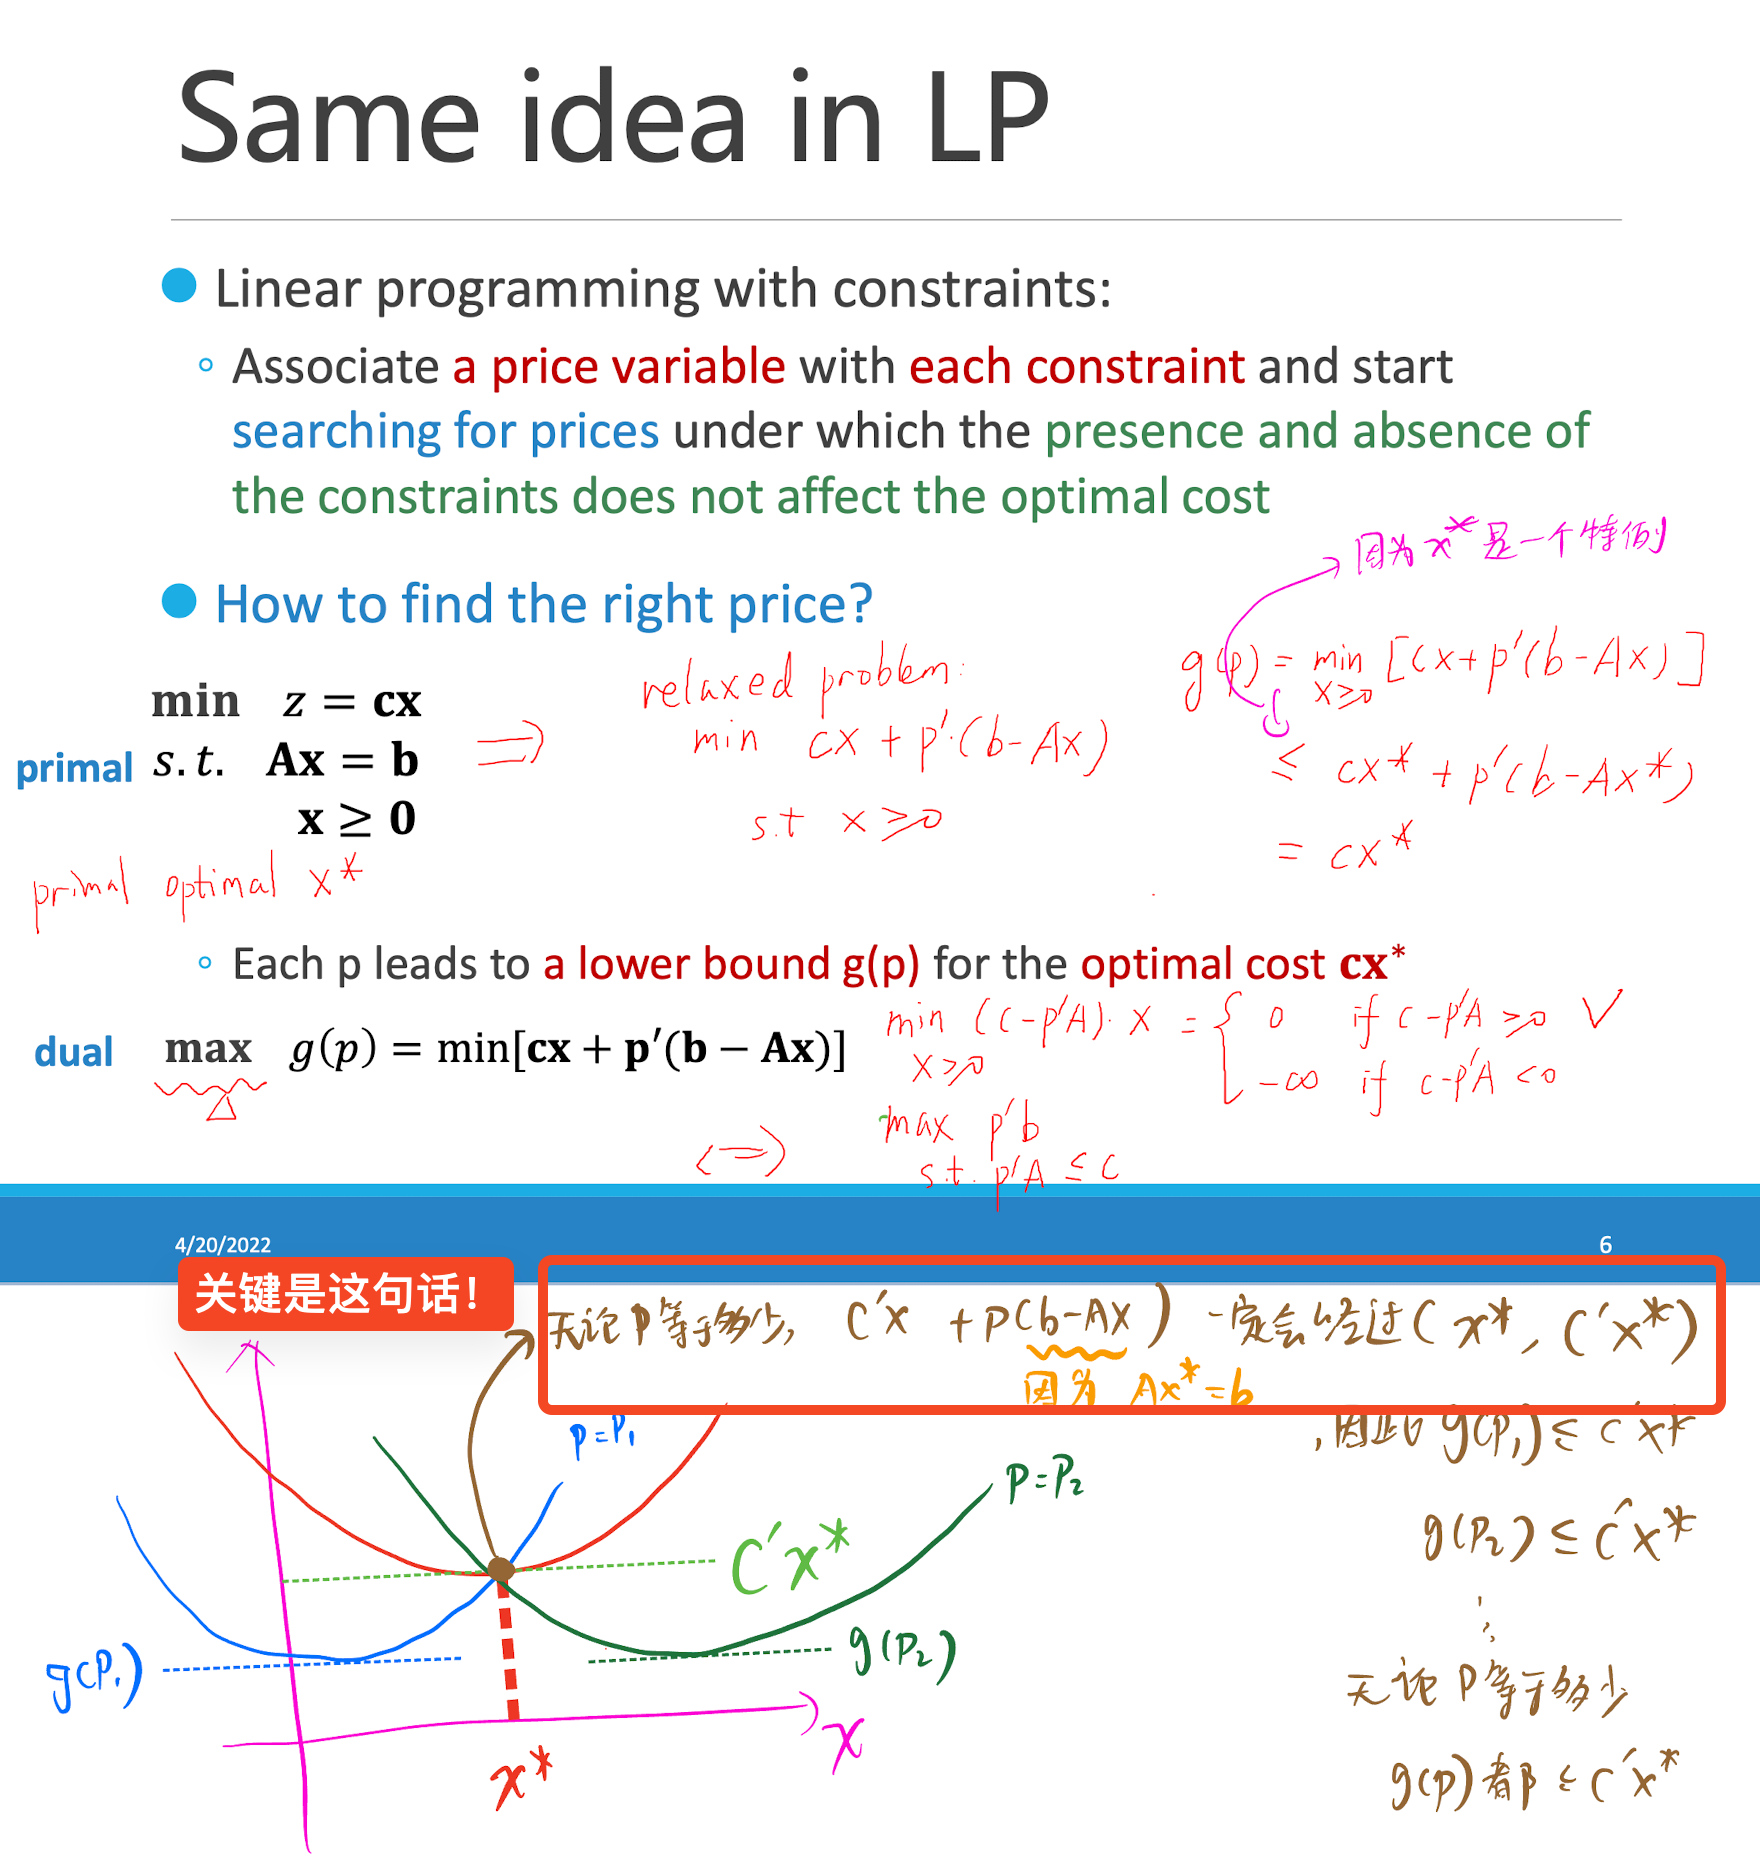 Same idea in LP
Linear programming with constraints:
Associate a price variable with each constraint and start
searching for prices under which the presence and absence of
the constraints does not affect the optimal cost
因为 x* 是一个特例
How to find the right price?
relaxed problem:
min cx + p'·(b-Ax)
s.t x ≥ 0
g(p) = min [cx + p'(b-Ax)]
x≥0
≤ cx* + p'(b-Ax*)
= cx*
min z = cx
primal s.t. Ax = b
x ≥ 0
⇒
primal optimal x*
Each p leads to a lower bound g(p) for the optimal cost cx*
dual max g(p) = min[cx + p′(b − Ax)]
min (c-p'A)·x = { 0 if c-p'A ≥0 ✓
x≥0
-∞ if c-p'A <0
⇔ max p'b
s.t. p'A ≤ c
4/20/2022
6
关键是这句话！
无论 P 等于多少, C'x + P(b-Ax) 一定会经过 (x*, C'x*)
因为 Ax* = b
, 因此 g(P₁) ≤ C'x*
P=P₁
P=P₂
g(P₂) ≤ C'x*
C'x*
g(P₁)
g(P₂)
无论 P 等于多少
x
x*
g(p) 都 ≤ C'x*